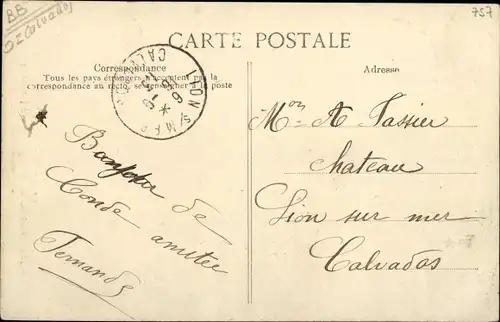 BB
D= Calvados
757
CARTE POSTALE
Correspondance
Tous les pays étrangers n'acceptent pas la
correspondance au recto, se renseigner à la poste
Adresse
LION S/ MER
Bonjour de
Conde amitiée
Fernande
Mon A Tassier
Chateau
Lion sur mer
Calvados